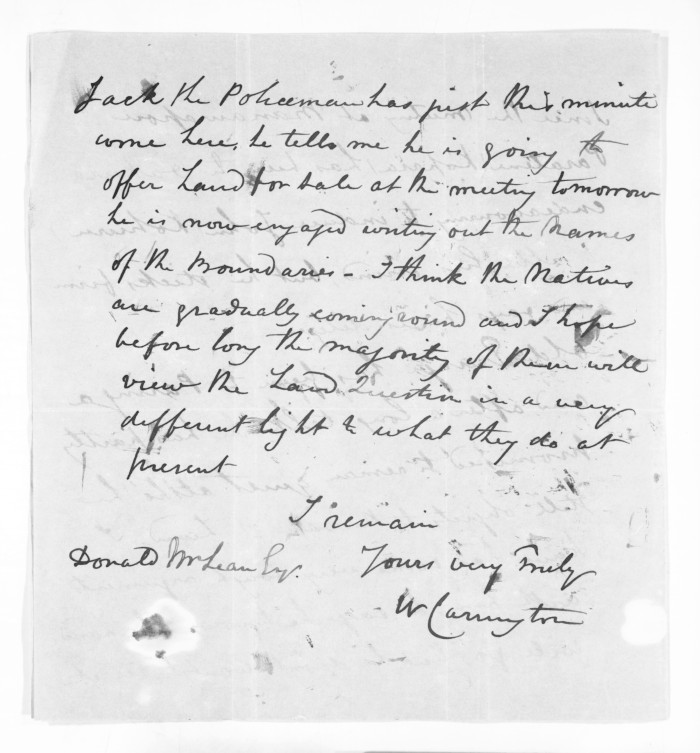 Jack the Policeman has just this minute
come here, he tells me he is going to
offer Land for Sale at the meeting tomorrow
he is now engaged writing out the Names
of the Boundaries - I think the Natives
are gradually coming round and I hope
before long the majority of them will
view the Land Question in a very
different light to what they do at
present
I remain
Donald McLean Esq. Yours very Truly
W Carrington